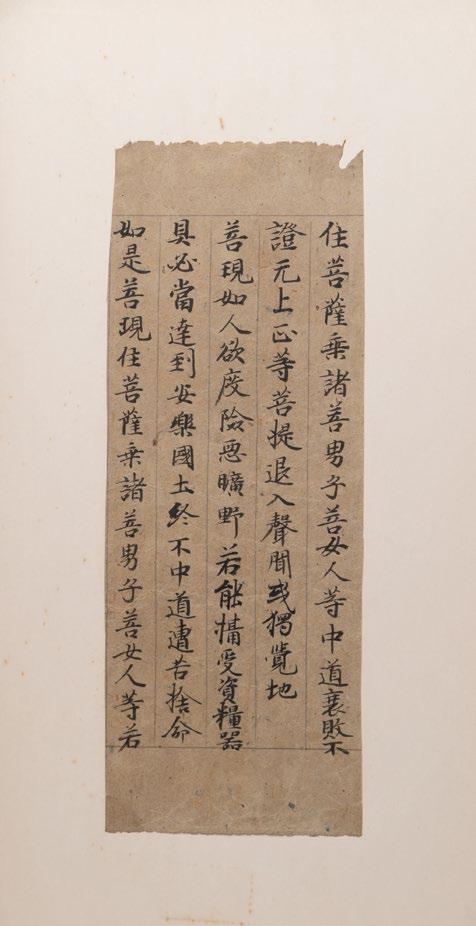 住菩薩乘諸善男子善女人等中道衰敗不
證无上正等菩提退入聲聞或獨覺地
善現如人欲度險惡曠野若能攝受資糧器
具必當達到安樂國土終不中道遭苦捨命
如是善現住菩薩乘諸善男子善女人等若